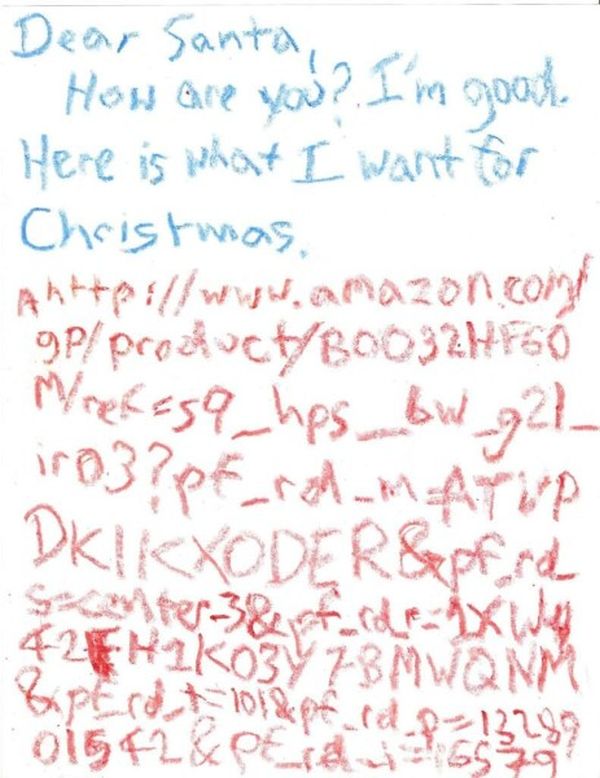 Dear Santa,
How are you? I'm good.
Here is what I want for
Christmas.
Ahttp://www.amazon.com/
gp/product/B0032HF60
M/ref=s9_hps_bw_g21_
ir03?pf_rd_m=ATVP
DKIKX0DER&pf_rd_
s=center-3&pf_rd_r=1XWy
42FH1K03Y78MWQNM
&pf_rd_t=101&pf_rd_p=13289
01542&pf_rd_i=165579